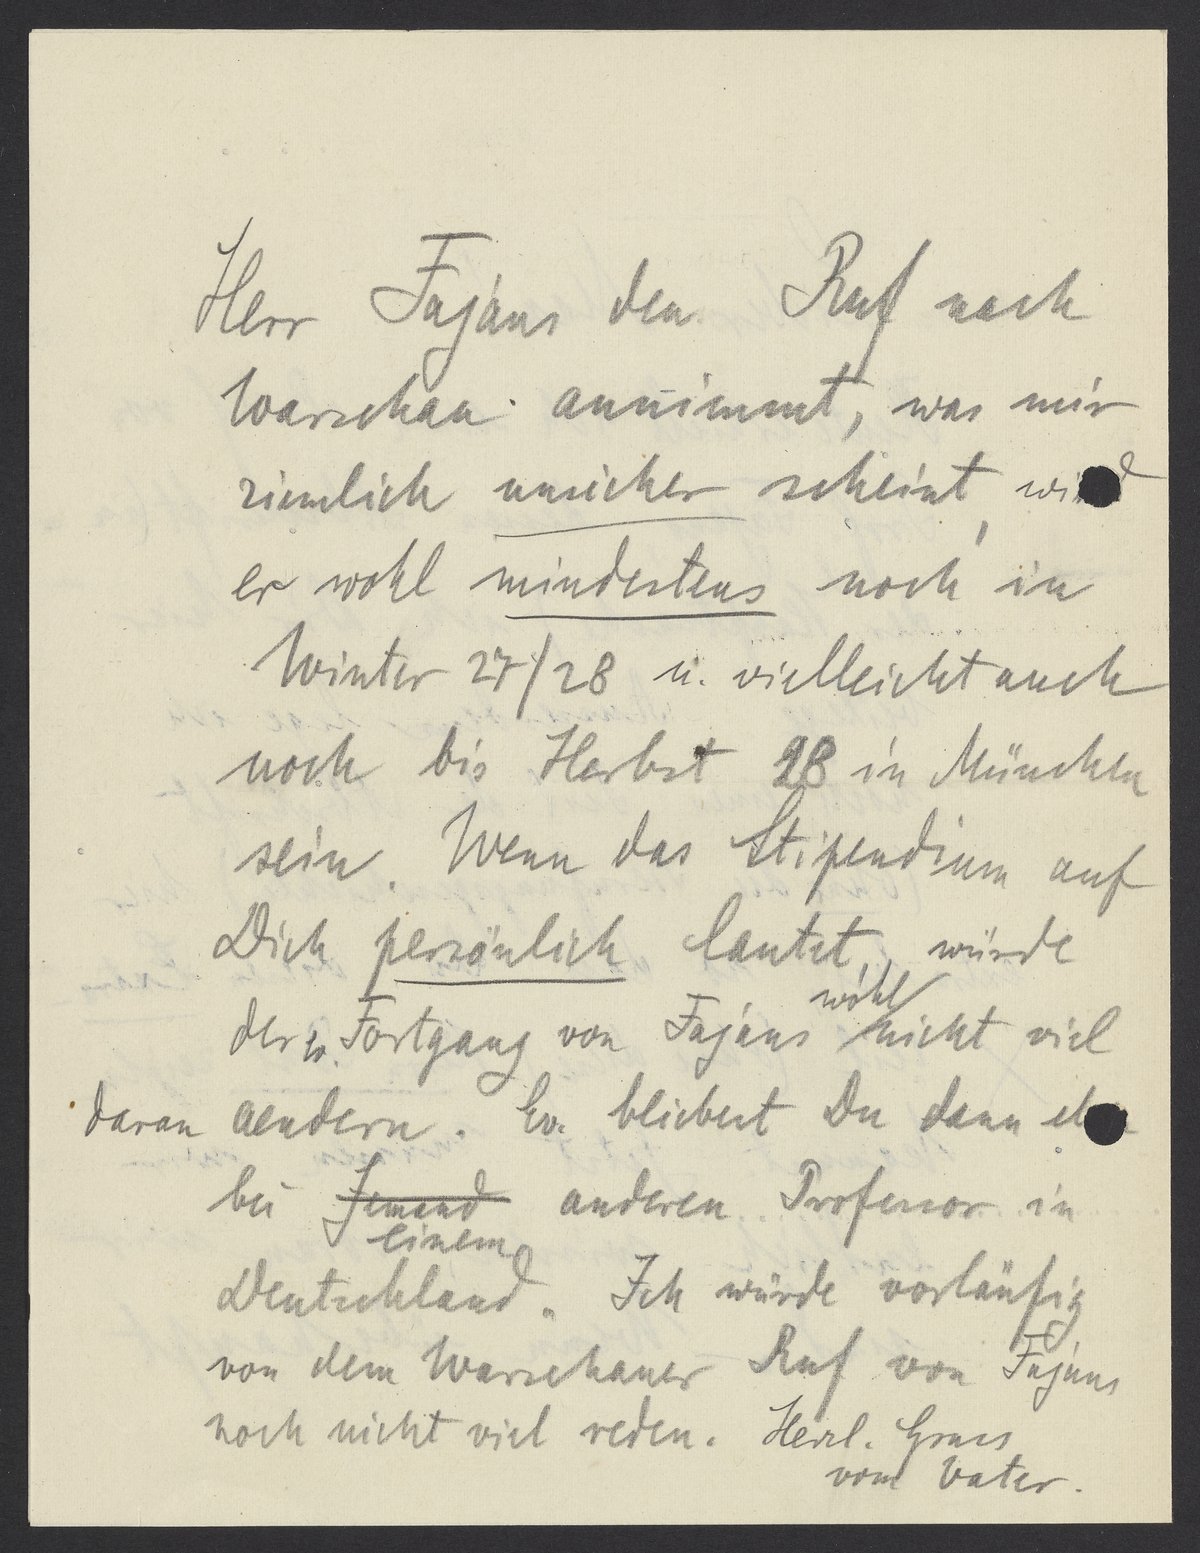 Herr Fajans den Ruf nach
Warschau annimmt, was mir
ziemlich unsicher scheint, wird
er wohl mindestens noch in
Winter 27/28 u. vielleicht auch
noch bis Herbst 28 in München
sein. Wenn das Stipendium auf
Dich persönlich lautet, würde
der Fortgang von Fajans wohl nicht viel
daran aendern. Ev. bliebest Du dann
bei Jemand einem anderen Professor in
Deutschland. Ich würde vorläufig
von dem Warschauer Ruf von Fajans
noch nicht viel reden. Herzl. Gruss
vom Vater.